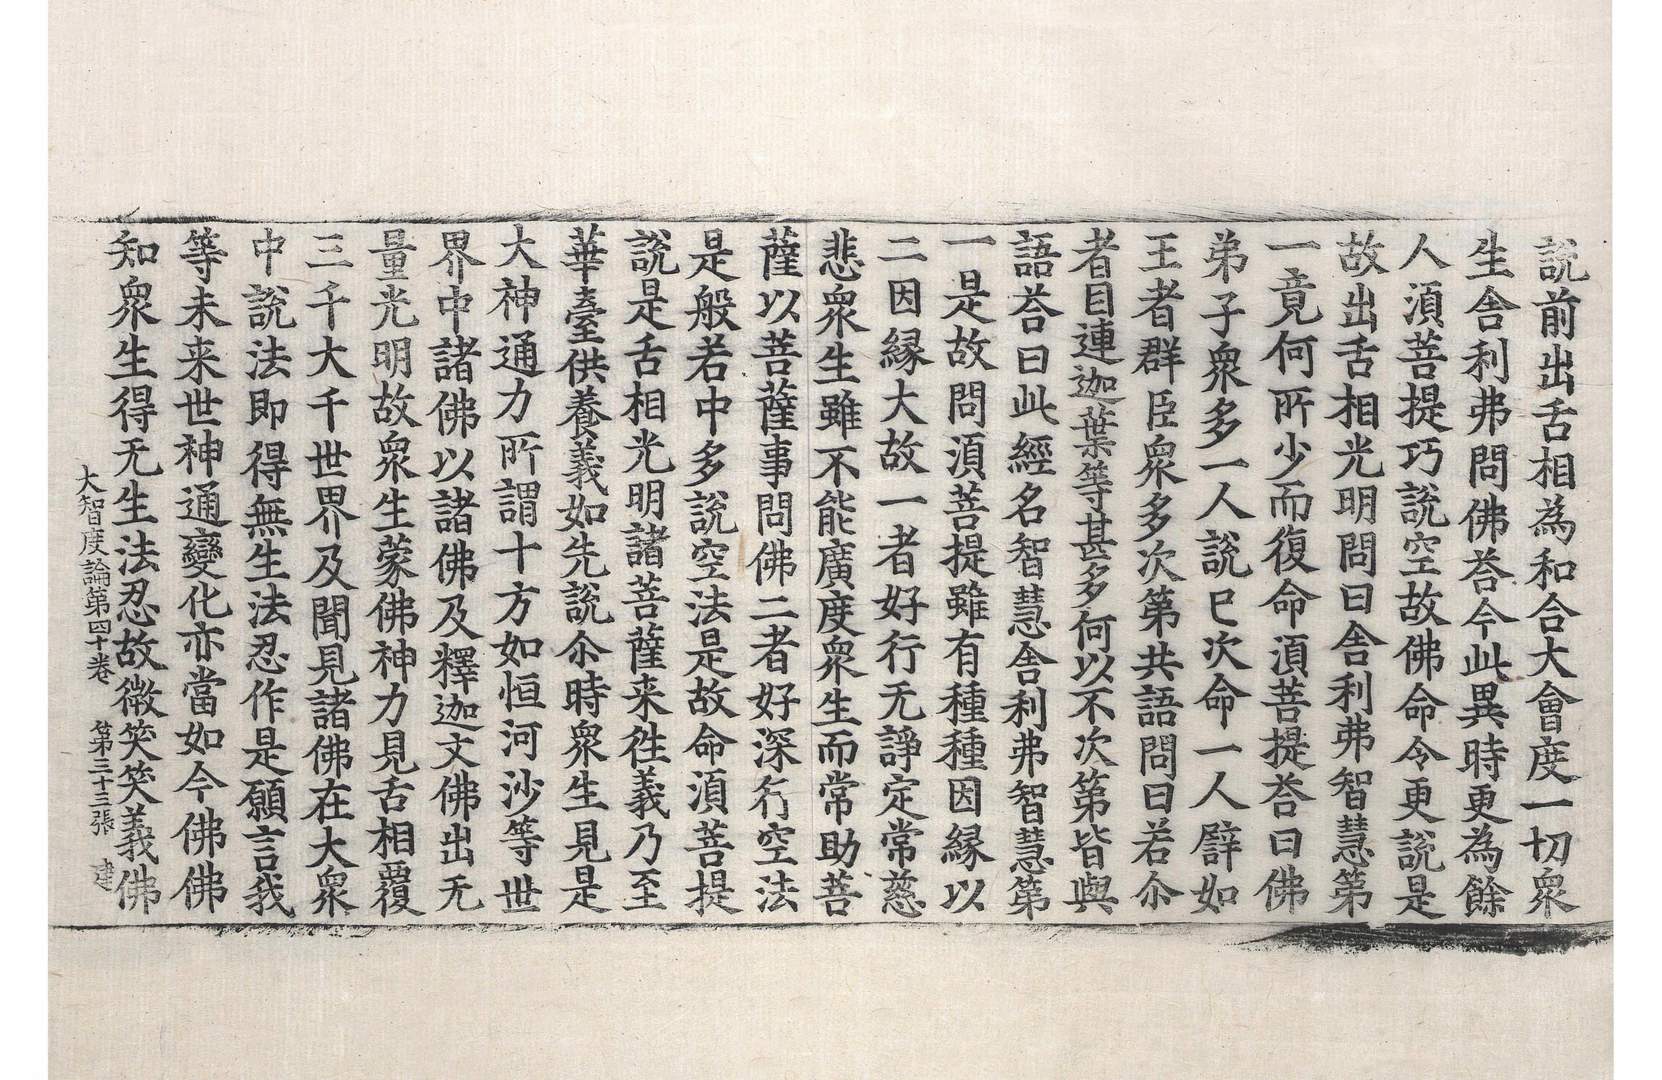 說前出舌相為和合大會度一切衆
生舍利弗問佛荅今此異時更為餘
人湏菩提巧說空故佛命令更說是
故出舌相光明問曰舍利弗智慧第
一竟何所少而復命湏菩提荅曰佛
弟子衆多一人說已次命一人譬如
王者群臣衆多次第共語問曰若尒
者目連迦葉等甚多何以不次第皆與
語荅曰此經名智慧舍利弗智慧第
一是故問湏菩提雖有種種因緣以
二因緣大故一者好行无諍定常慈
悲衆生雖不能廣度衆生而常助菩
薩以菩薩事問佛二者好深行空法
是般若中多說空法是故命湏菩提
說是舌相光明諸菩薩来徃義乃至
華臺供養義如先說尒時衆生見是
大神通力所謂十方如恒河沙等世
界中諸佛以諸佛及釋迦文佛出无
量光明故衆生蒙佛神力見舌相覆
三千大千世界及聞見諸佛在大衆
中說法即得無生法忍作是願言我
等未来世神通變化亦當如今佛佛
知衆生得无生法忍故微笑笑義佛
大智度論第四十卷 第三十三張 建